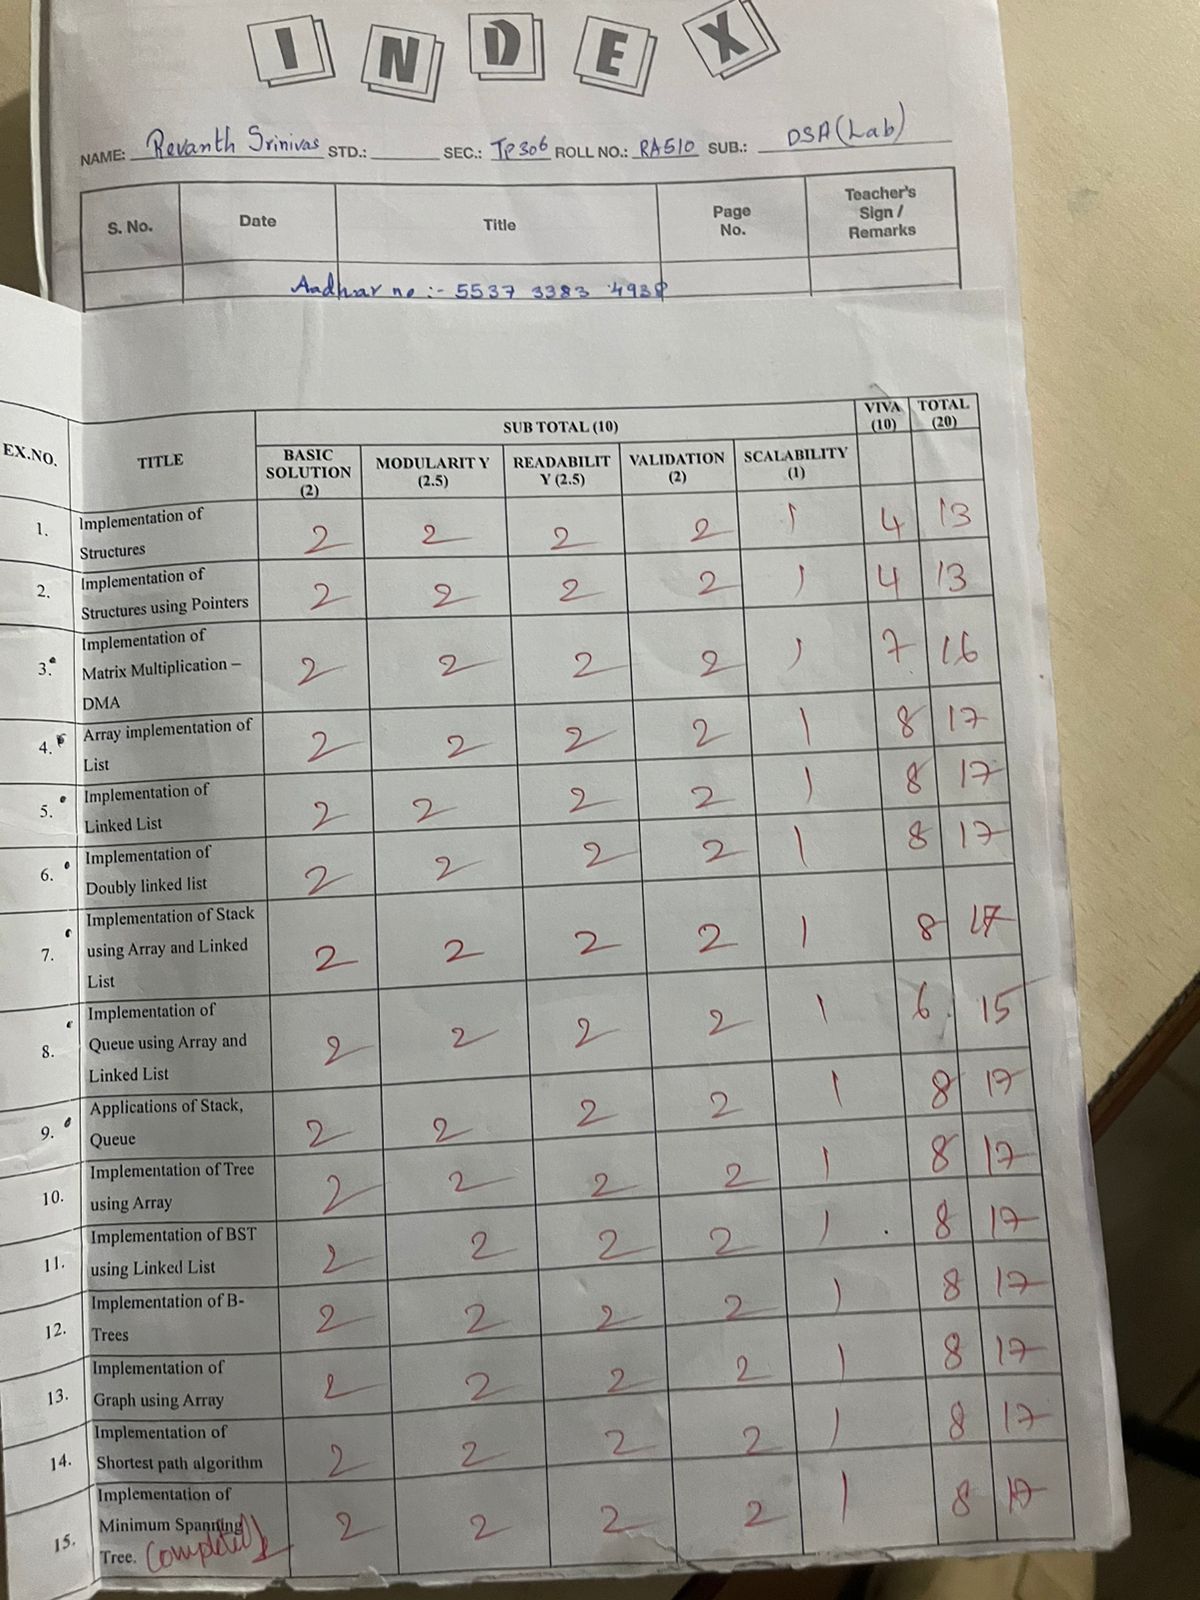 INDEX
NAME: Revanth Srinivas STD.: SEC.: TP306 ROLL NO.: RA510 SUB.: DSA (Lab)
S. No. Date Title Page No. Teacher's Sign / Remarks
Aadhar no :- 5537 3383
EX.NO. TITLE SUB TOTAL (10) VIVA (10) TOTAL (20)
BASIC SOLUTION (2) MODULARITY (2.5) READABILITY (2.5) VALIDATION (2) SCALABILITY (1)
1. Implementation of Structures 2 2 2 2 1 4 13
2. Implementation of Structures using Pointers 2 2 2 2 1 4 13
3. Implementation of Matrix Multiplication – DMA 2 2 2 2 1 7 16
4. Array implementation of List 2 2 2 2 1 8 17
5. Implementation of Linked List 2 2 2 2 1 8 17
6. Implementation of Doubly linked list 2 2 2 2 1 8 17
7. Implementation of Stack using Array and Linked List 2 2 2 2 1 8 17
8. Implementation of Queue using Array and Linked List 2 2 2 2 1 6 15
9. Applications of Stack, Queue 2 2 2 2 1 8 17
10. Implementation of Tree using Array 2 2 2 2 1 8 17
11. Implementation of BST using Linked List 2 2 2 2 1 8 17
12. Implementation of B-Trees 2 2 2 2 1 8 17
13. Implementation of Graph using Array 2 2 2 2 1 8 17
14. Implementation of Shortest path algorithm 2 2 2 2 1 8 17
15. Implementation of Minimum Spanning Tree. Completed 2 2 2 2 1 8 17